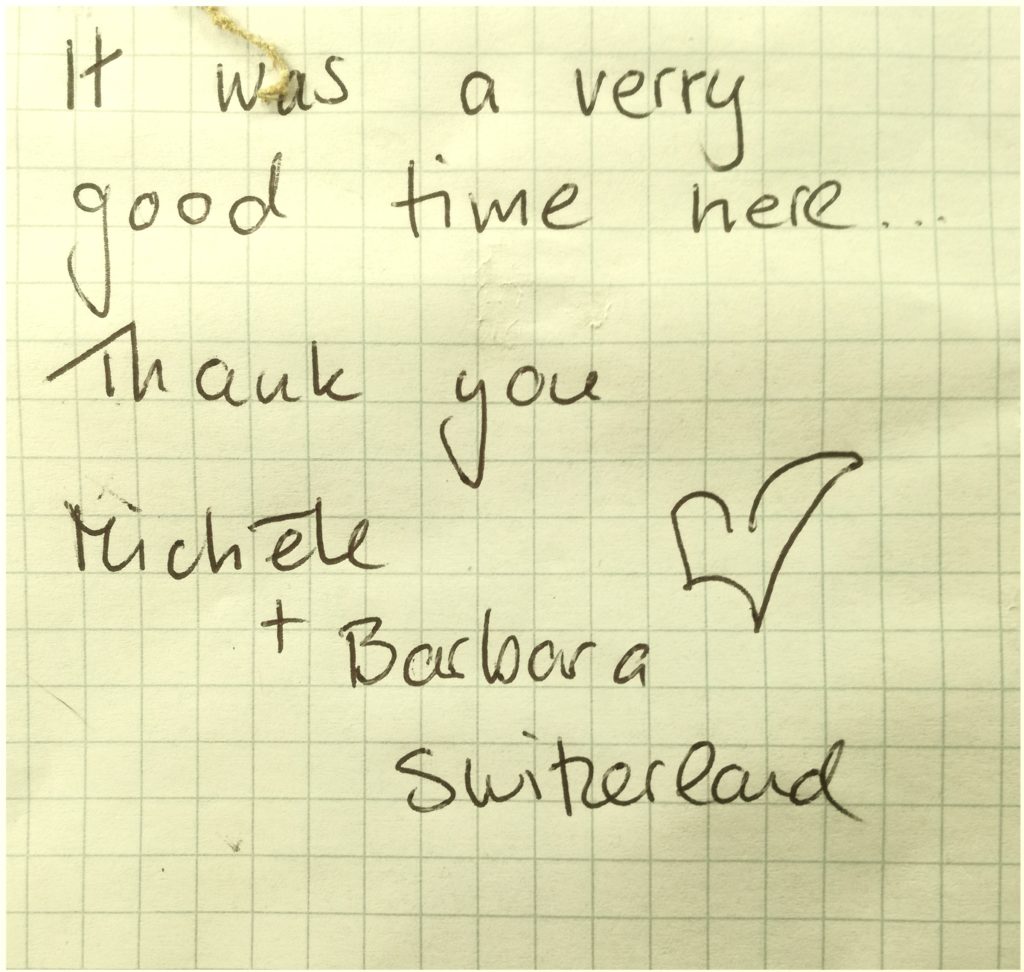 It was a verry
good time here...
Thank you
Michèle
+ Barbara
Switzerland